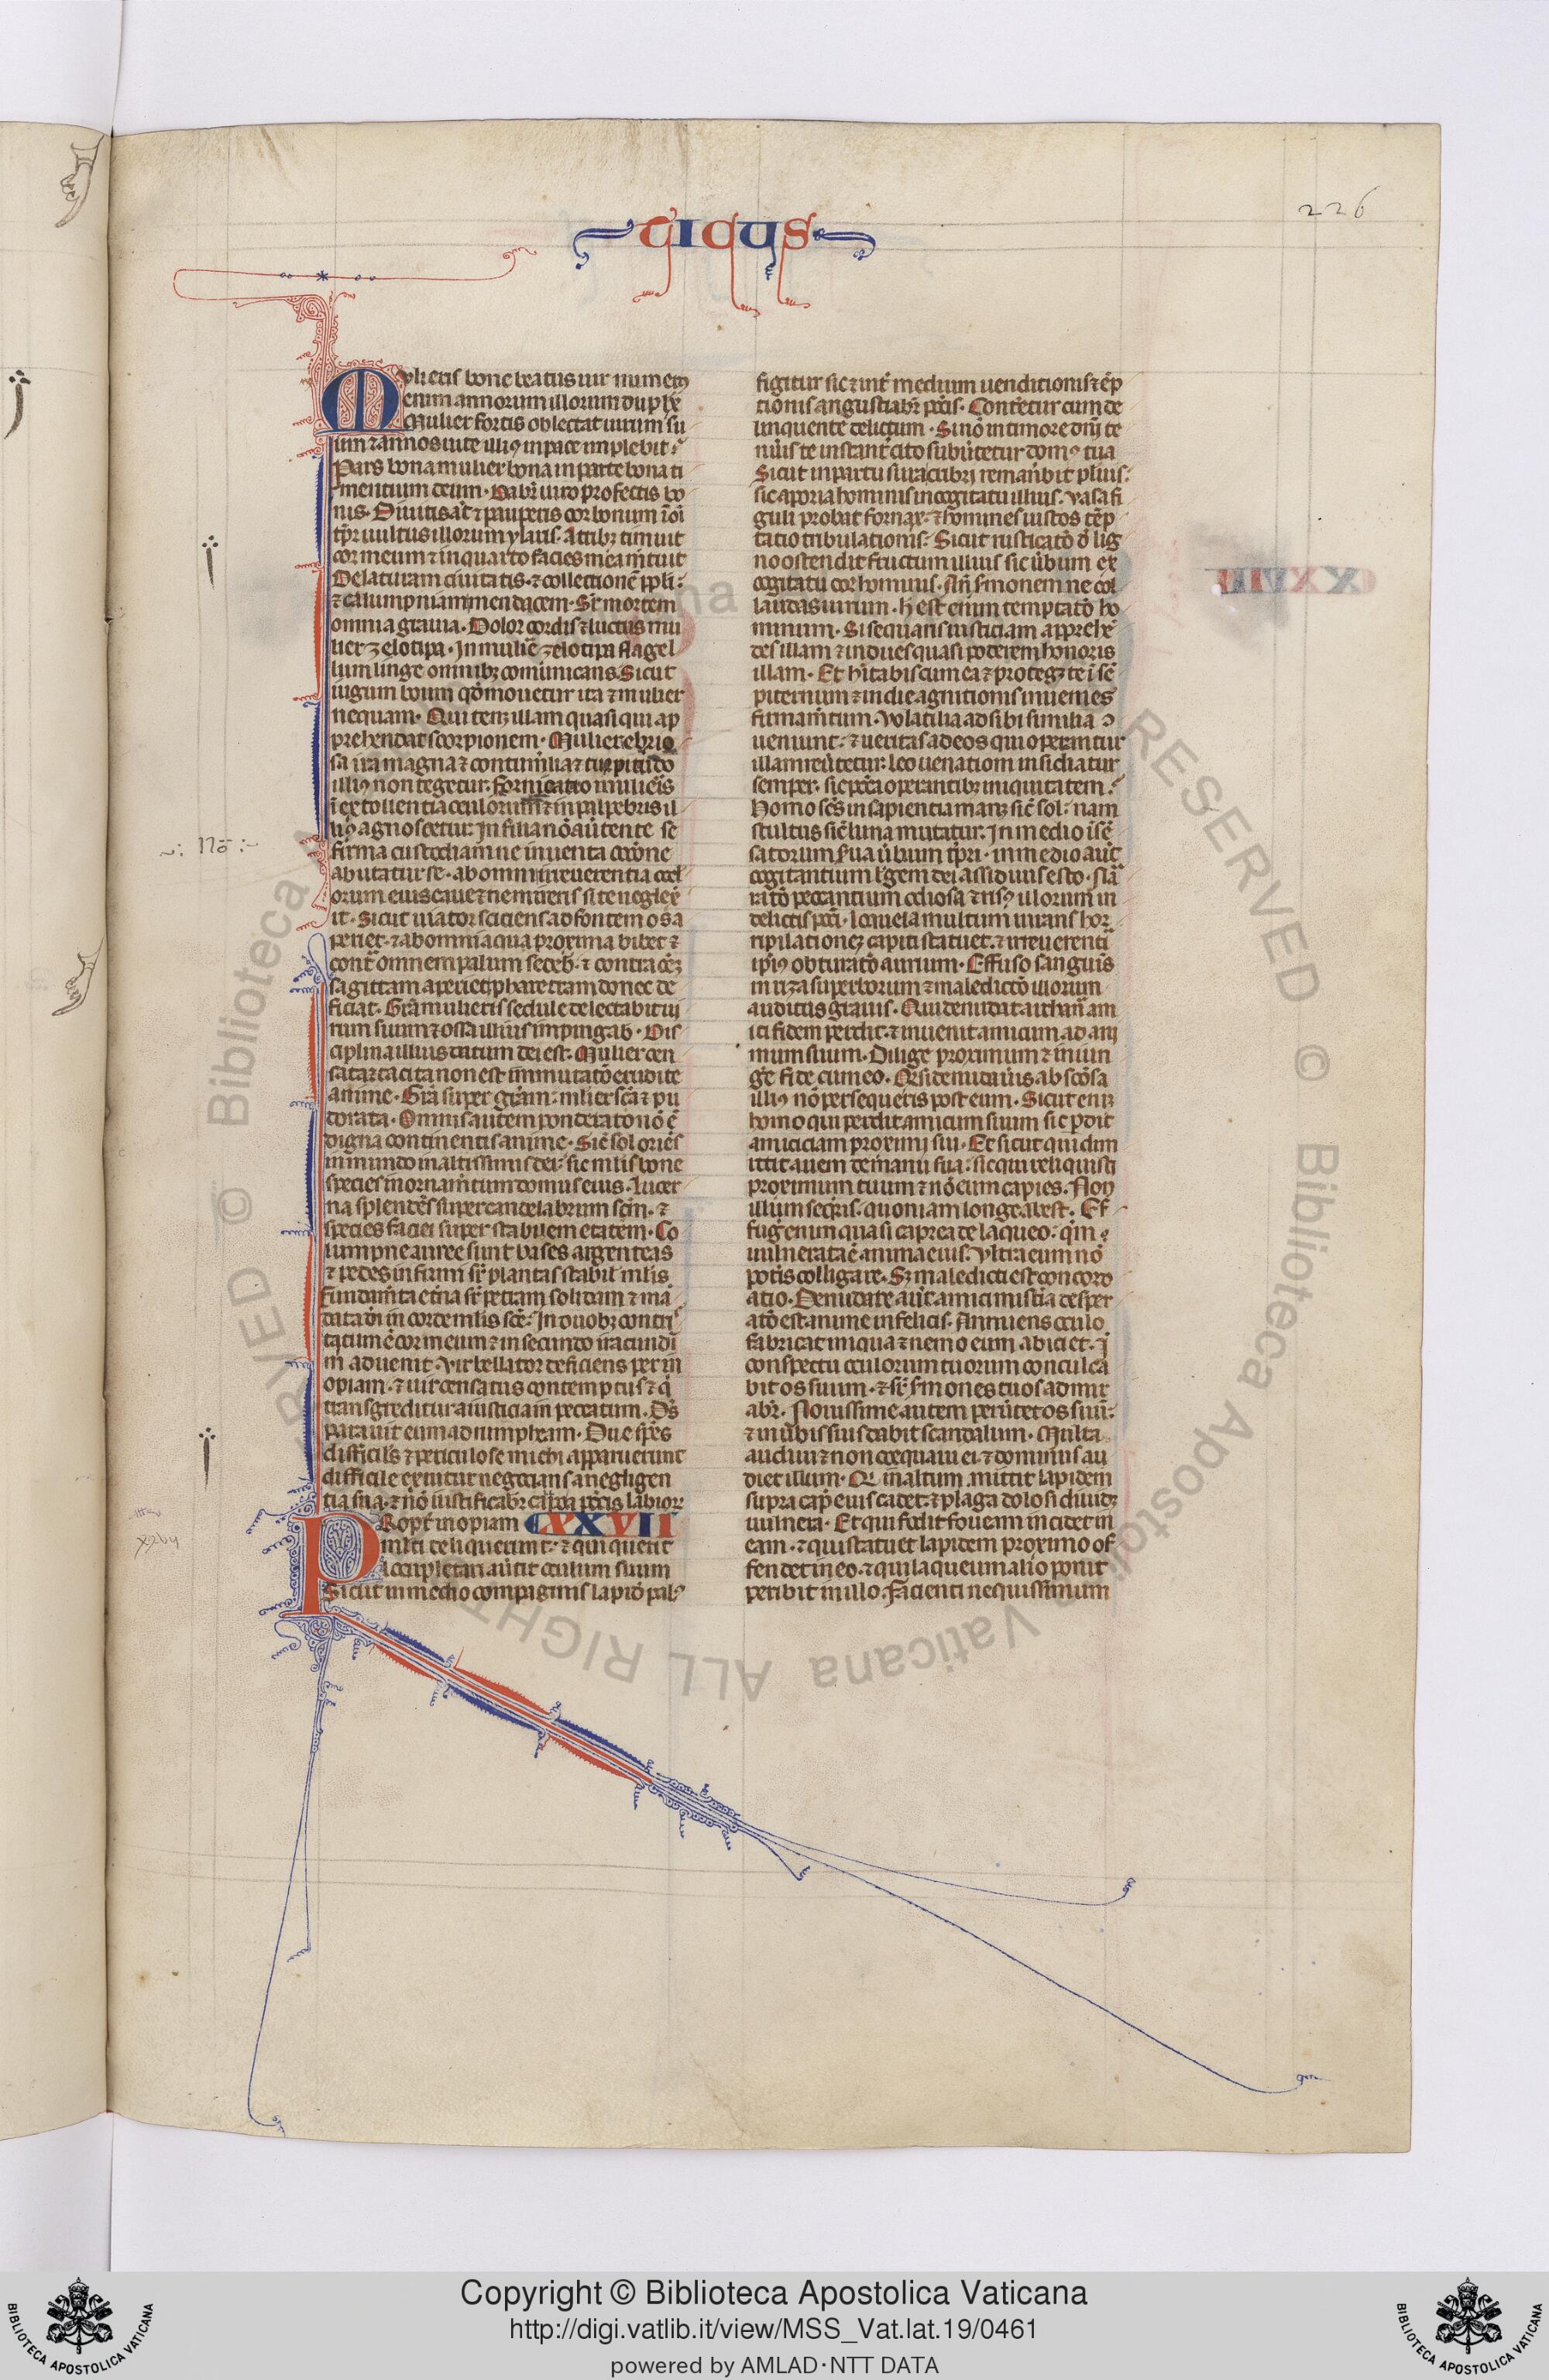 226
TICUS
Mulieris bone beatus uir numerus
enim annorum illorum duplex
Mulier fortis oblectat uirum su
um ⁊ annos uite illiꝰ in pace implebit.
Pars bona mulier bona in parte bona ti
mentium deum. Dabit᷑ uiro pro factis bo
nis. Diuitis aūt ⁊ pauperis cor bonum ī oī
tp̄r uultus illorum ylaris. A tribꝫ timuit
cor meum ⁊ in quarto facies mea metuit
Delaturam ciuitatis. ⁊ collectionē ppli:
⁊ calumpniam mendacem. Sr̄ mortem
omnia grauia. Dolor cordis ⁊ luctus mu
lier zelotipa. In muliē zelotipa flagel
lum linge omnibꝫ comunicans. Sicut
iugum boum qd̄ mouetur ita ⁊ mulier
nequam. Qui tenꝫ illam quasi qui ap
prehendat scorpionem. Mulier ebrio
sa ira magna ⁊ contumlia ⁊ turpitudo
illiꝰ non tegetur. Fornicatio mulieris
ī extollentia oculorum ⁊ in palpebris il
liꝰ agnoscetur. In filia nō auertente se
firma custodiam ne inuenta occōne
abutatur se. ab omni irreuerentia ocul
orum eius caue ⁊ ne mireris si te neglex̄
it. Sicut uiator sciciens ad fontem os a
periet. ⁊ ab omni aqua proxima bibet ⁊
cont̄ omnem palum sedeb. ⁊ contra oēꝫ
sagittam aperiet pharetram donec de
ficiat. Grā mulieris sedule delectabit ui
rum suum ⁊ ossa illius inpingab. Dis
ciplina illius datum dei est. Mulier cen
sata ⁊ tacita non est inmutatō erudite
anime. Grā super grām: mlier scā ⁊ pu
dorata. Omnis autem ponderatō nō ē
digna continentis anime. Sic̄ sol oriēs
in mundo in altissimis dei: sic mlis bone
species in ornam̄tum domus eius. Lucer
na splendēs super candelabrum scm̄. ⁊
species faciei super stabilem etatem. Co
lumpne auree sunt bases argenteas
⁊ pedes in firmi sr̄ plantas stabil mlis
Fundam̄ta et̄na sr̄ petram solidam ⁊ mā
data di in corde mlis scē. In duobꝫ contri
tatum ē cor meum ⁊ in secundo iracundī
m̄ aduenit. Vir bellator deficiens per in
opiam. ⁊ uir censatus contemptus ⁊ q̄
transgreditur a iusticia in peccatum. Ds̄
parauit eum ad rumpheam. Due spēs
difficilˢ ⁊ periculose michi apparuerunt
difficile exuitur negocians a negligen
tia sua. ⁊ nō iustificabr̄ caupo pctis labiorꝫ
Propt̄ inopiam CXXVII
multi deliquerunt. ⁊ qui querit
locupletari auertit oculum suum
Sicut in medio compaginis lapidō pal
figitur sic ⁊ int̄ medium uenditionis ⁊ ēp
tionis angustiabr̄ pctis. Conteretur cum de
linquente delictum. Si nō in timore dnī te
nu᷑is te instant̄ cito subuertetur domꝰ tua
Sicut in partu sura cribrj remanebit pluis:
sic aporia hominis in cogitatu illius. Vasa fi
guli probat fornax. ⁊ homines iustos tēp
tatio tribulationis. Sicut rusticatō d̄ lig
no ostendit fructum illius sic u᷑bum ex
cogitatu cor hominis. An̄ sm̄onem ne col
laudas uirum. h̄ est enim temptatō ho
minum. Si sequaris iusticiam apprehē
des illam ⁊ indues quasi poderem honoris
illam. Et hītabis cum ea ⁊ protegꝫ te ī sē
piternum ⁊ in die agnitionis inuenies
firmam̄tum. Volatilia ad sibi similia ɔ
ueniunt. ⁊ ueritas ad eos qui operantur
illam reu᷑tetur. leo uenationi insidiatur
semper. sic pctā operantibꝫ iniquitatem.
Homo scs̄ in sapientia manꝫ sic̄ sol: nam
stultus sic̄ luna mutatur. In medio īsē
satorum serua u᷑bum tp̄ri. in medio aut̄
cogitantium legem dei assiduus esto. Nar
ratō peccantium odiosa ⁊ risꝰ illorum in
delictis pcti. loquela multum iurans hor
ripilationeꝫ capiti statuet. ⁊ irreuerenti
ipiꝰ obturatō aurium. Effusio sanguis
in rixa superborum ⁊ maledictō illorum
auditus grauis. Qui denudat archana am
ici fidem perdit. ⁊ inuenit amicum ad ani
mum suum. Dilige proximum ⁊ iniun
ge fide cum eo. Qr̄ si denudau᷑is abscōsa
illiꝰ nō persequeris post eum. Sicut eniꝫ
homo qui perdit amicum suum sic pdit
amiciciam proximi sui. Et sicut qui dim
ittit auem de manu sua: sic qui reliquisti
proximum tuum ⁊ nō eum capies. Non
illum seqris. quoniam longe abest. Ef
fugit enim quasi caprea de laqueo: qm̄
uulnerata ē anima eius. Vltra eum nō
potis colligare. Sꝫ maledicti est concord
atio. Denudare aut̄ amici misteria desper
atō est anime infelicis. Annuens oculo
fabricat iniqua ⁊ nemo eum abiciet. ī
conspectu oculorum tuorum conculca
bit os suum. ⁊ sr̄ sm̄ones tuos admir
abr̄. Nouissime autem peru᷑tet os suū:
⁊ in u᷑bis suis dabit scandalum. Multa
audiui ⁊ non coequaui ei ⁊ dominus au
diet illum. Qi in altum mittit lapidem
supra cap̄ eius cadet. ⁊ plaga dolosi diuidꝫ
uulnera. Et qui fodit foueam incidet in
eam. ⁊ qui statuet lapidem proximo of
fendet in eo. ⁊ qui laqueum alio ponit
peribit in illo. Facienti nequissimum
~: no :~
Copyright © Biblioteca Apostolica Vaticana
http://digi.vatlib.it/view/MSS_Vat.lat.19/0461
powered by AMLAD·NTT DATA
BIBLIOTECA APOSTOLICA VATICANA
BIBLIOTECA APOSTOLICA VATICANA